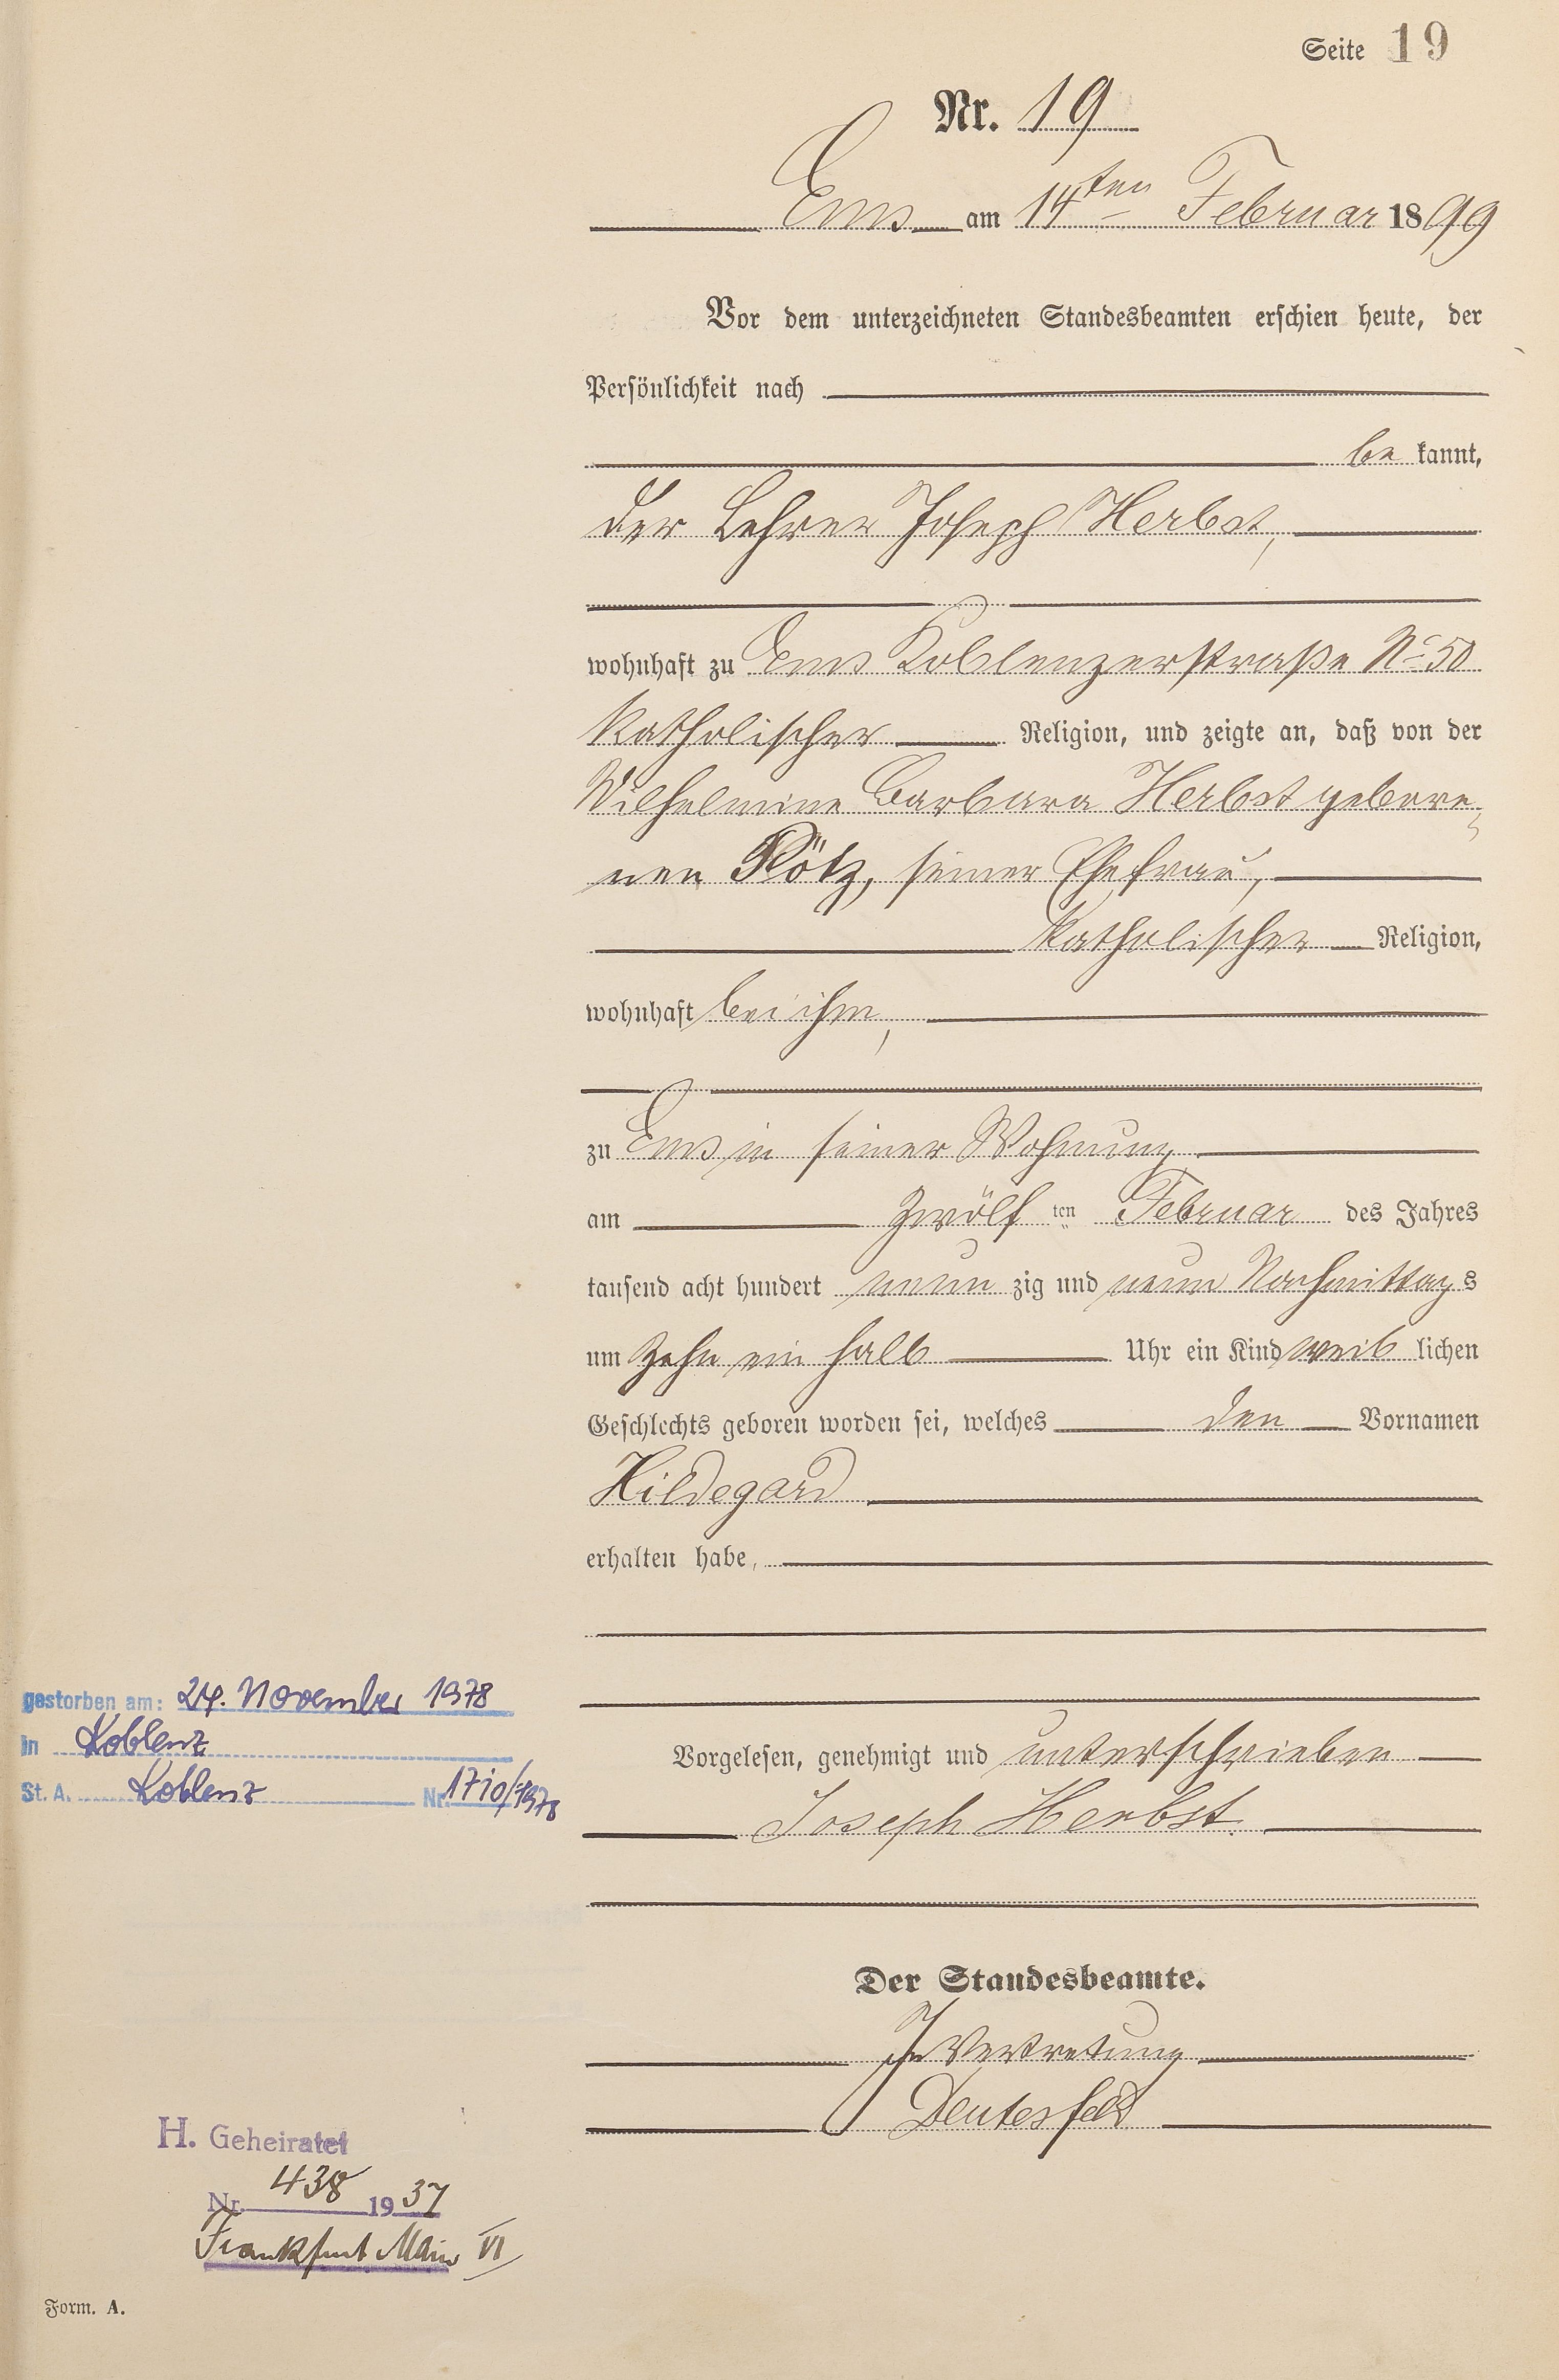 Seite 19
Nr. 19
Ems am 14ten Februar 1899
Vor dem unterzeichneten Standesbeamten erschien heute, der
Persönlichkeit nach
be kannt,
der Lehrer Joseph Herbst,
wohnhaft zu Ems Koblenzerstraße No 50
katholischer Religion, und zeigte an, daß von der
Wilhelmine Barbara Herbst gebore-
nen Rötz, seiner Ehefrau,
katholischer Religion,
wohnhaft bei ihm,
zu Ems in seiner Wohnung
am zwölf ten Februar des Jahres
tausend acht hundert neun zig und neun Nachmittags
um zehn ein halb Uhr ein Kind weib lichen
Geschlechts geboren worden sei, welches den Vornamen
Hildegard
erhalten habe,
Vorgelesen, genehmigt und unterschrieben
Joseph Herbst.
Der Standesbeamte.
In Vertretung
Deutesfeld
gestorben am: 24. November 1978
in Koblenz
St. A. Koblenz Nr. 1710/1978
H. Geheiratet
Nr. 438 1937
Frankfurt Main VI
Form. A.